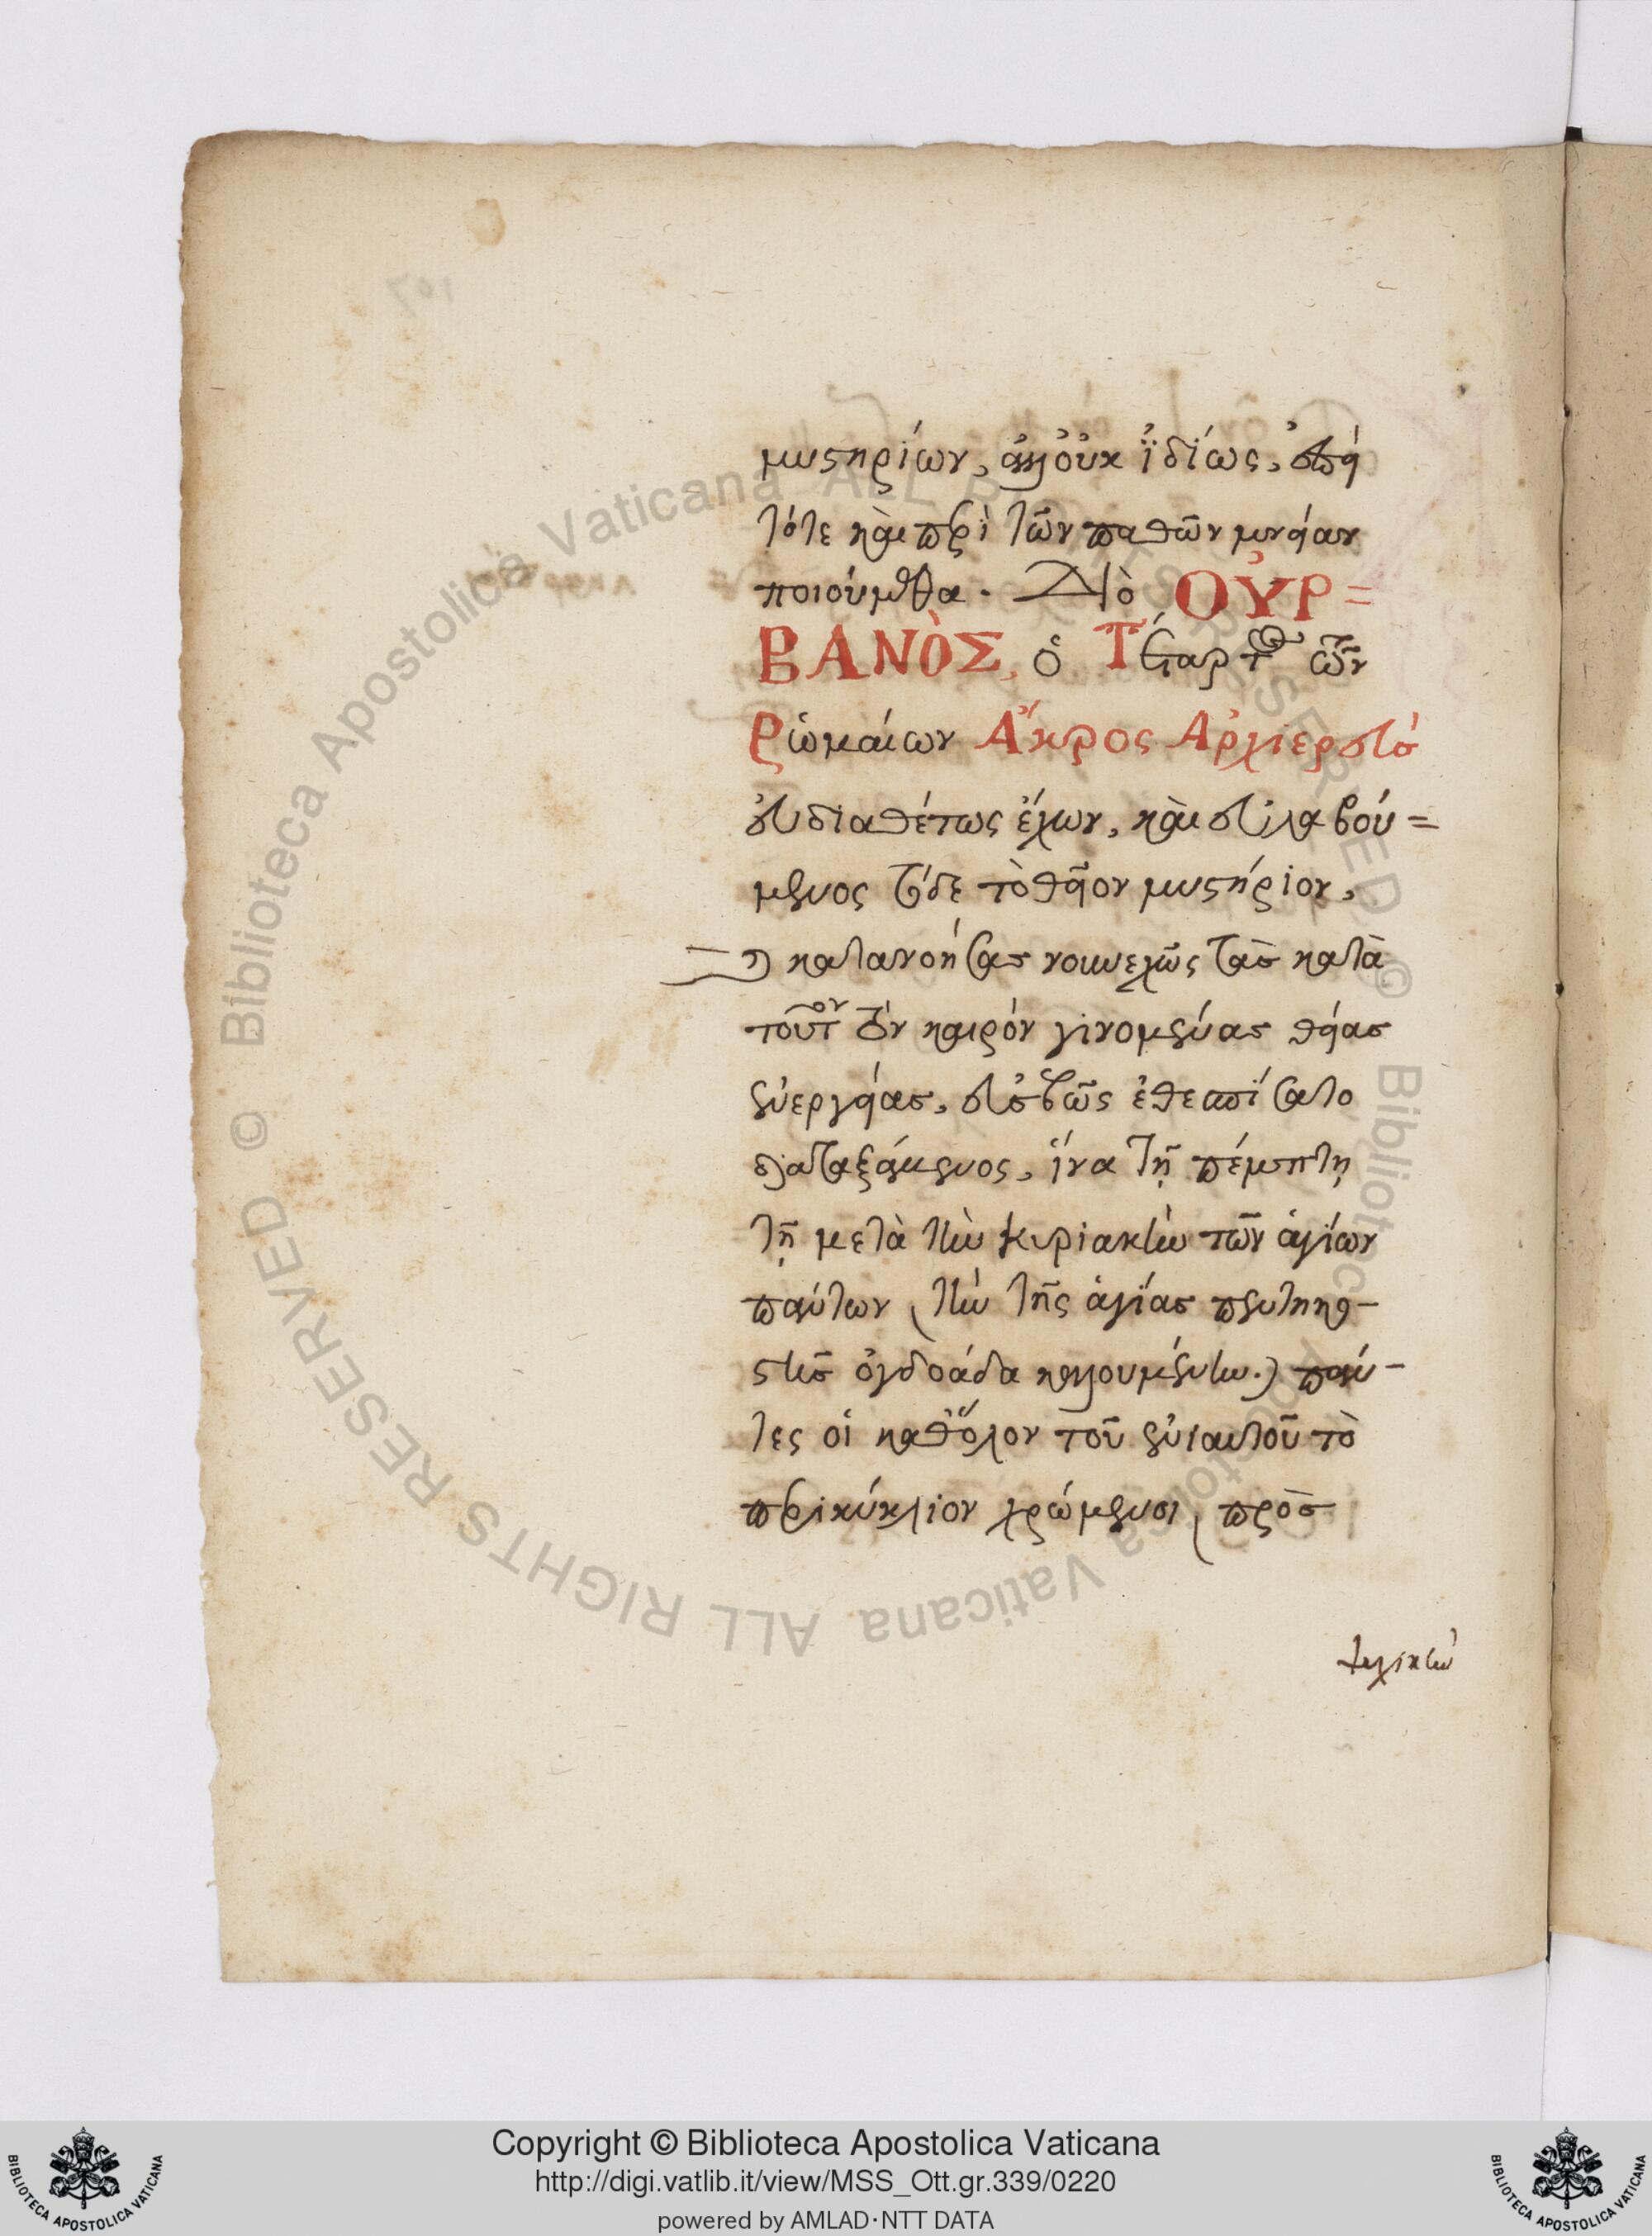 μυστηρίων, ἀλλ' οὐκ ἰδίως, ἐπεὶ
τότε καὶ περὶ τῶν παθῶν μνείαν
ποιούμεθα. Διὸ ΟὐΡ=
ΒΑΝῸΣ, ὁ Τέταρτος τῶν
Ῥωμαίων Ἄκρος Ἀρχιερεὺς
εὐδιαθέτως ἔχων, καὶ εὐλαβού=
μενος τόδε τὸ θεῖον μυστήριον,
καὶ κατανοήσας νουνεχῶς τὰς κατὰ
τοῦτον τὸν καιρὸν γινομένας θείας
ἐνεργείας, εὐσεβῶς ἐθεσπίσατο
διαταξάμενος, ἵνα τῇ πέμπτῃ
τῇ μετὰ τὴν κυριακὴν τῶν ἁγίων
πάντων, τὴν τῆς ἁγίας πεντηκο-
στῆς ὀγδοάδα καλουμένην.) πάν-
τες οἱ καθόλον τοῦ ἐνιαυτοῦ τὸ
περικύκλιον χρώμενοι, πρὸς
Copyright © Biblioteca Apostolica Vaticana
http://digi.vatlib.it/view/MSS_Ott.gr.339/0220
powered by AMLAD·NTT DATA
BIBLIOTECA APOSTOLICA VATICANA
BIBLIOTECA APOSTOLICA VATICANA
© Biblioteca Apostolica Vaticana ALL RIGHTS RESERVED
© Biblioteca Apostolica Vaticana ALL RIGHTS RESERVED